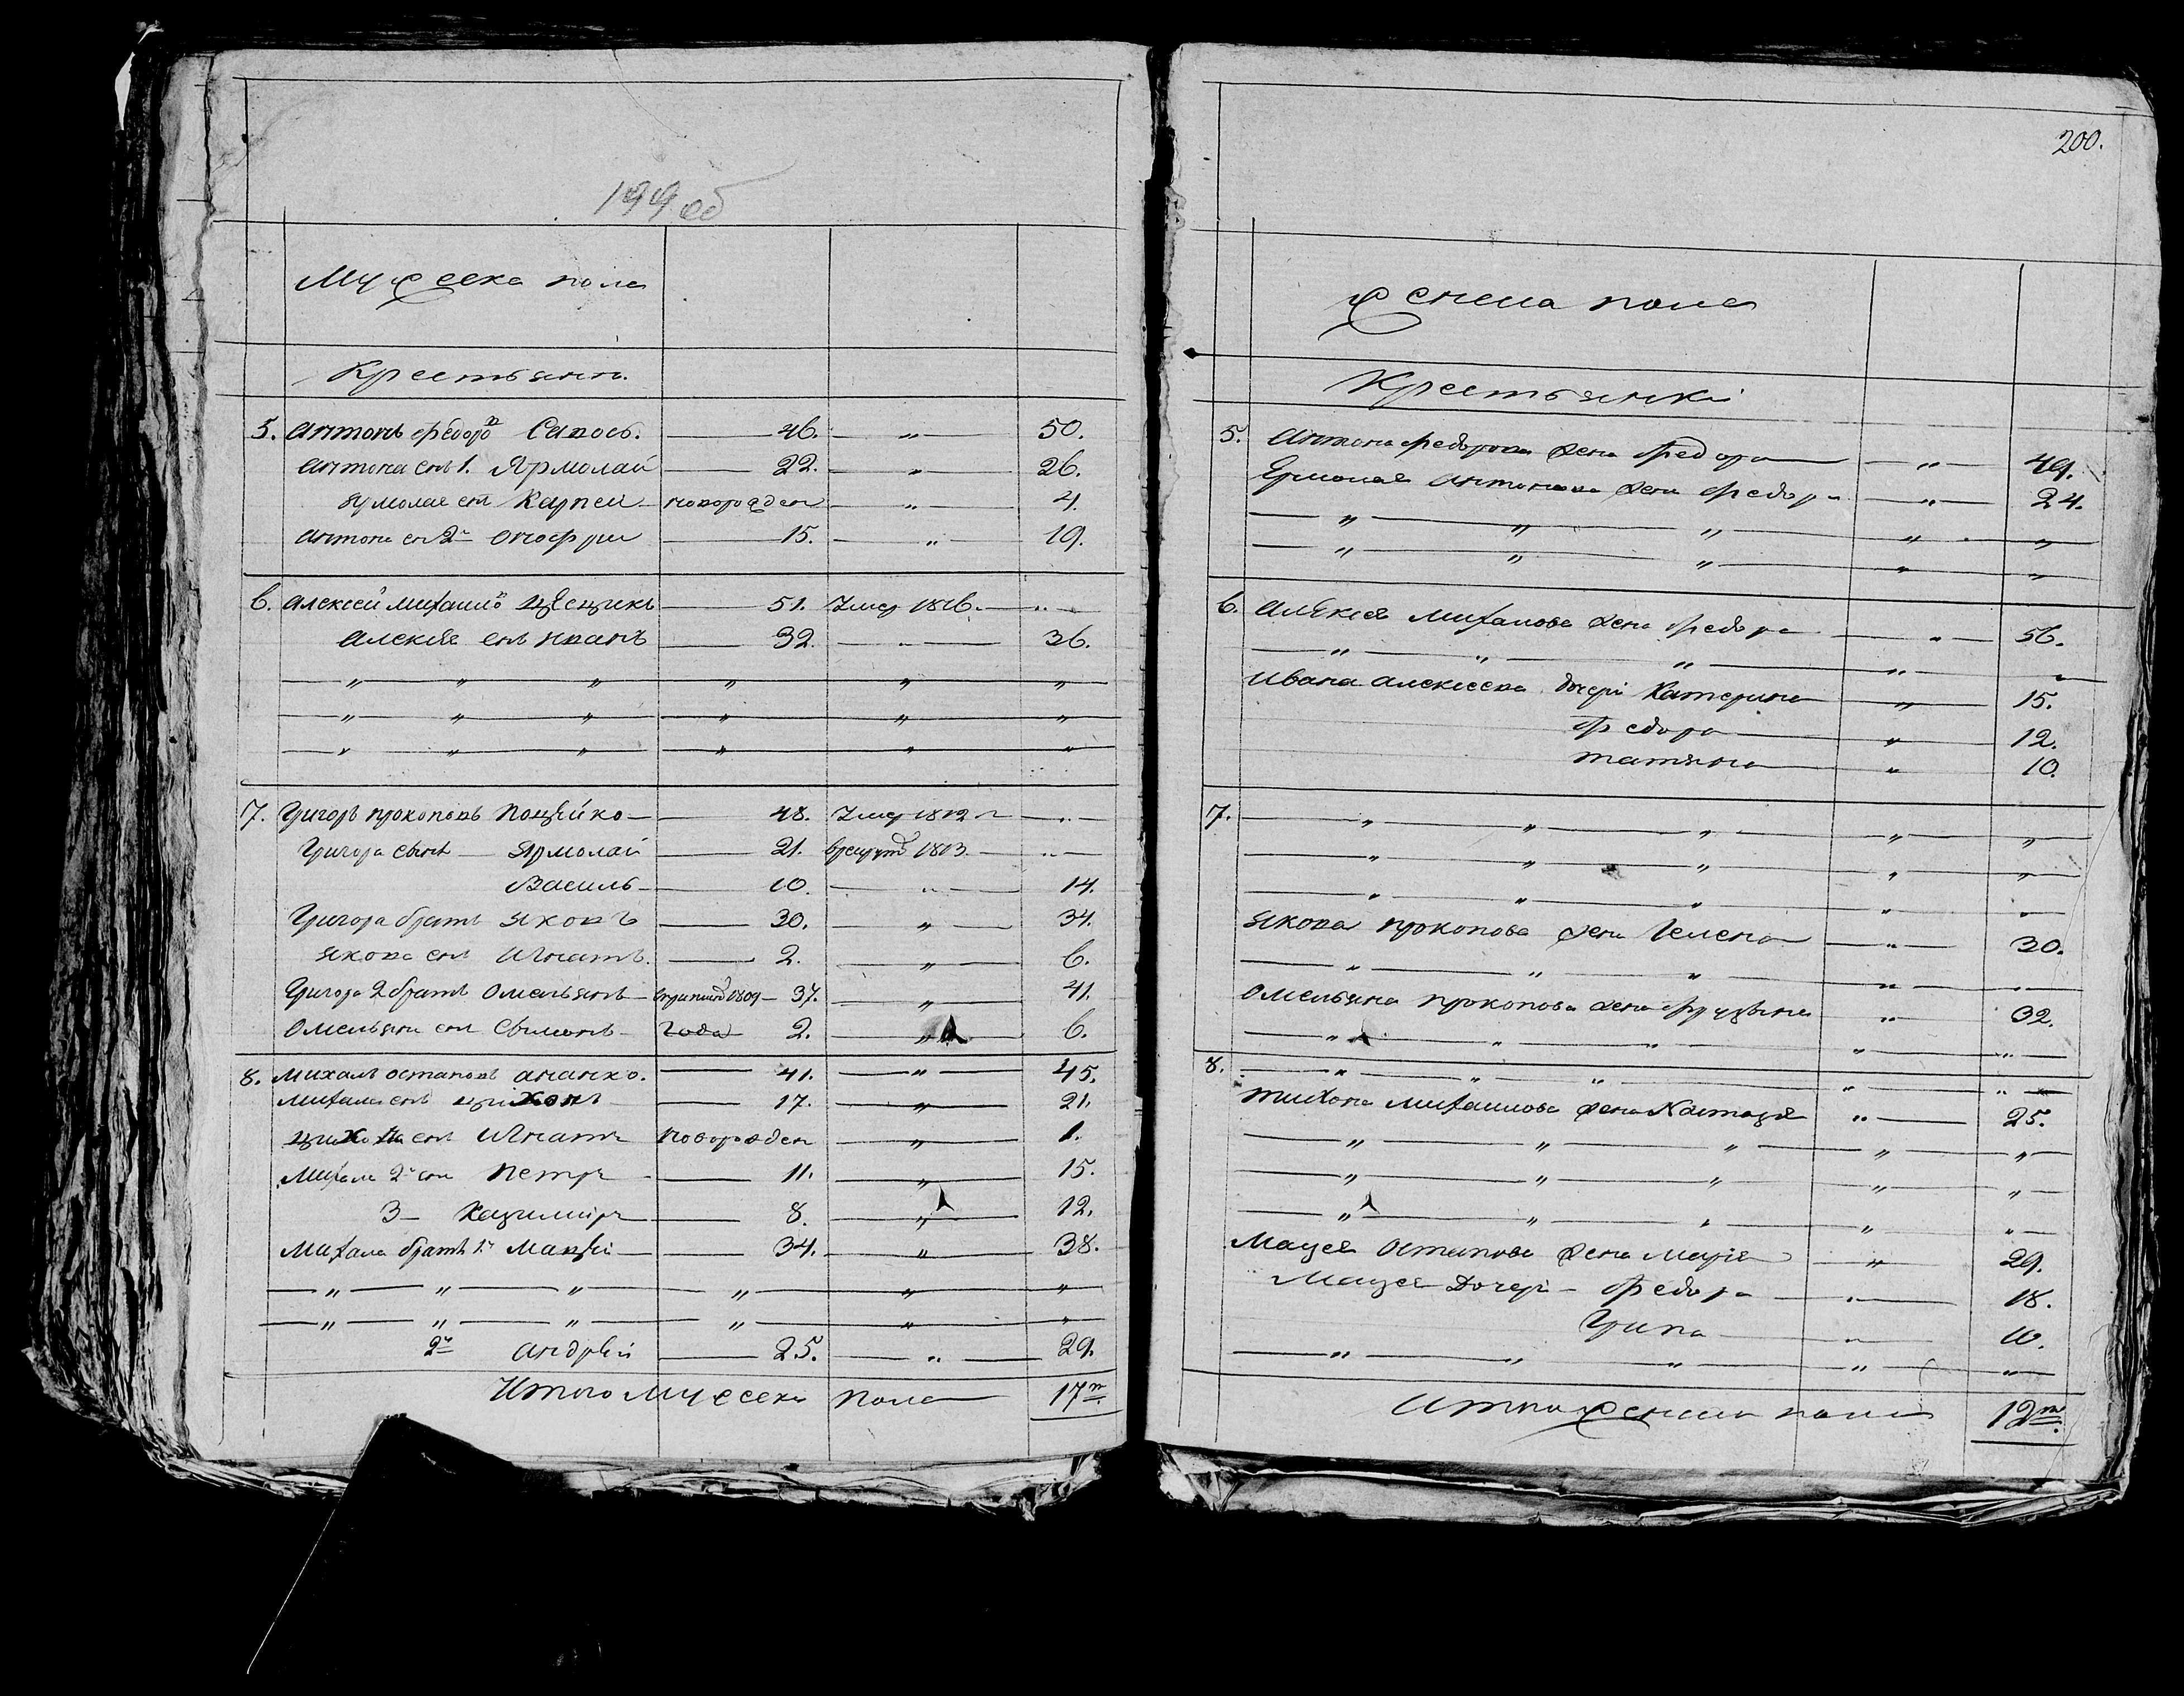 199 об
Мужеска пола
Крестьяне.
5. Антонъ Федоровъ Сапочъ. 46. „ 50.
Антона сынъ 1. Ярмолай 22. „ 26.
Ярмолая сынъ Карпей новорожден „ 4.
Антона сынъ 2й Онофри 15. „ 19.
6. Алексей Михайло 51. Умер 1816. „
Алексея сынъ Иванъ 32. „ 36.
„ „ „ „ „ „
„ „ „ „ „ „
„ „ „ „ „ „
7. Григоръ Прокоповъ Поцейко 48. Умер 1812 „
Григора сынъ Ярмолай 21. 1813. „
Василь 10. „ 14.
Григора братъ Яковъ 30. „ 34.
Якова сынъ Игнатъ. 2. „ 6.
Григора 2 братъ Омельянъ 1809 37. „ 41.
Омельяна сынъ Сымонъ года 2. „ 6.
8. Михалъ Остаповъ Ананко. 41. „ 45.
Михала сынъ Цихонъ 17. „ 21.
Цихона сынъ Игнатъ новорожден „ 1.
Михала 2й сынъ Петръ 11. „ 15.
3 Казимиръ 8. „ 12.
Михала братъ 1й Мацей 34. „ 38.
„ „ „ „ „ „
„ „ „ „ „ „
2й Андрей 25. „ 29.
Итого Мужеска пола 17ть
200.
Женска пола
Крестьянки
5. Антона Федорова жена Федора „ 49.
Ермолая Антонова жена Федора „ 24.
„ „ „ „ „
„ „ „ „ „
6. Алексея Михайлова жена Федора „ 56.
„ „ „ „ „
Ивана Алексеева дочери Катерина „ 15.
Федора „ 12.
Татяна „ 10.
7. „ „ „ „ „
„ „ „ „ „
„ „ „ „ „
Якова Прокопова жена Гелена „ 30.
„ „ „ „ „
Омельяна Прокопова жена Фрузына „ 32.
„ „ „ „ „
8. „ „ „ „ „
Тихона Михайлова жена Настазя „ 25.
„ „ „ „ „
„ „ „ „ „
„ „ „ „ „
Мацея Остапова жена Марiя „ 29.
Мацея Дочери Федора „ 18.
Грипа „ 10.
„ „ „ „ „
Итого женска пола 12ть.